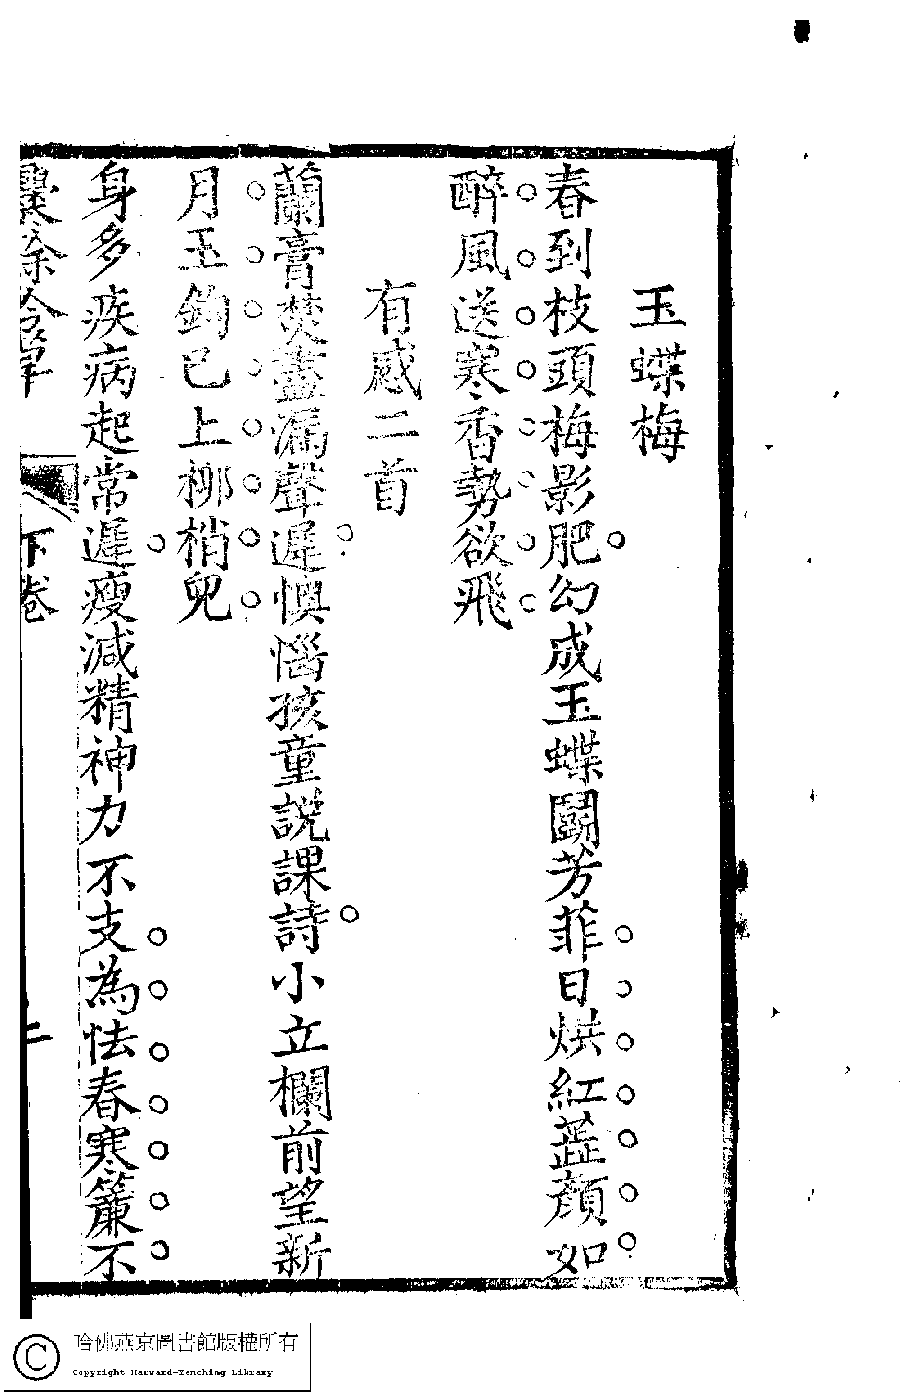 玉蝶梅
春到枝頭梅影肥幻成玉蝶鬭芳菲日烘紅蕋顏如
醉風送寒香勢欲飛
有感二首
蘭膏焚盡漏聲遲懊惱孩童説課詩小立欄前望新
月玉鉤已上柳梢兒
身多疾病起常遲瘦減精神力不支為怯春寒簾不
下卷
哈佛燕京圖書館版權所有
Copyright Harvard-Yenching Library